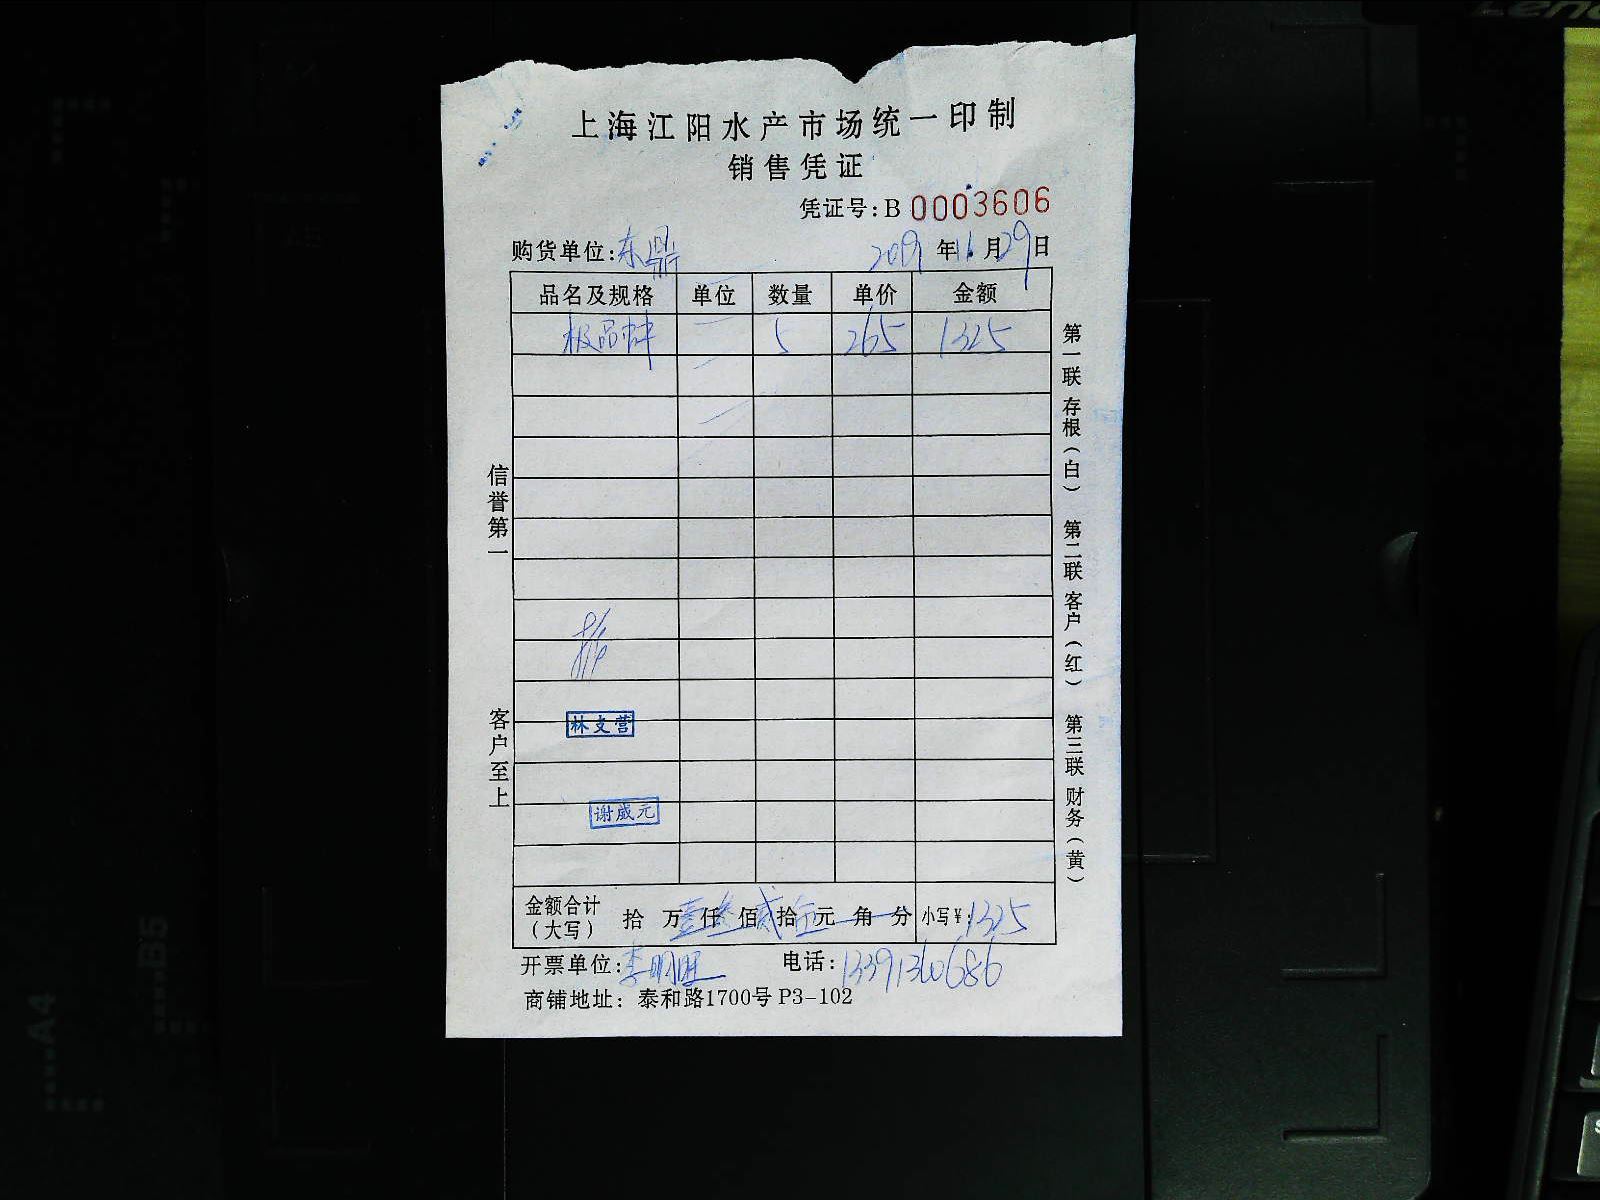 上海江阳水产市场统一印制
销售凭证
凭证号:B 0003606
购货单位:东鼎 2019年11月29日
品名及规格 单位 数量 单价 金额
极品 5 265 1325
信誉第一
客户至上
林支营
谢成元
第一联 存根(白) 第二联 客户(红) 第三联 财务(黄)
金额合计(大写) 拾 万壹仟叁佰贰拾伍元 角 分 小写¥:1325
开票单位:李明旺 电话:13391360686
商铺地址: 泰和路1700号 P3-102
A4
B5
Leno